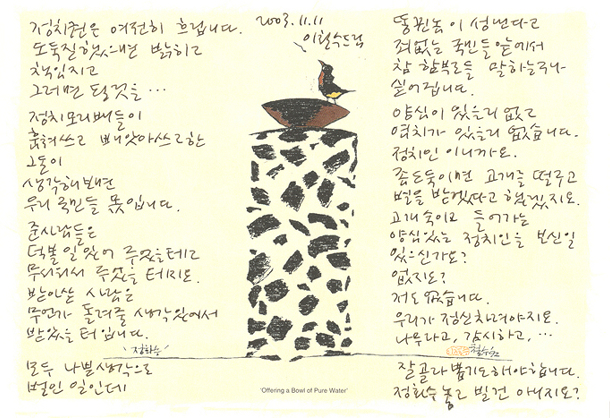 정치권은 여전히 흐립니다.
도둑질했으면 밝히고
책임지고
그러면 될것을 …
정치모리배들이
훔쳐쓰고 빼앗아쓰고한
그돈이
생각해보면
우리 국민들 몫입니다.
준사람들은
덕볼 일 있어 주었을테고
무서워서 주었을 테지요.
받아쓴 사람은
무언가 돌려줄 생각있어서
받았을 터입니다.
모두 나쁜생각으로
벌인 일인데
2003.11.11
이철수드림
정화수
'Offering a Bowl of Pure Water'
똥뀐놈이 성낸다고
죄없는 국민들 앞에서
참 함부로들 말하는구나
싶어집니다.
양심이 있을리 없고
염치가 있을리 없습니다.
정치인 이니까요.
좀도둑이면 고개를 떨구고
벌을 받겠다고 했겠지요.
고개숙이고 들어가는
양심있는 정치인을 보신일
있으신가요?
없지요?
저도 없습니다.
우리가 정신차려야지요.
나무라고, 감시하고, …
철수
잘골라 뽑기도해야합니다.
정화수놓고 빌건 아니지요?